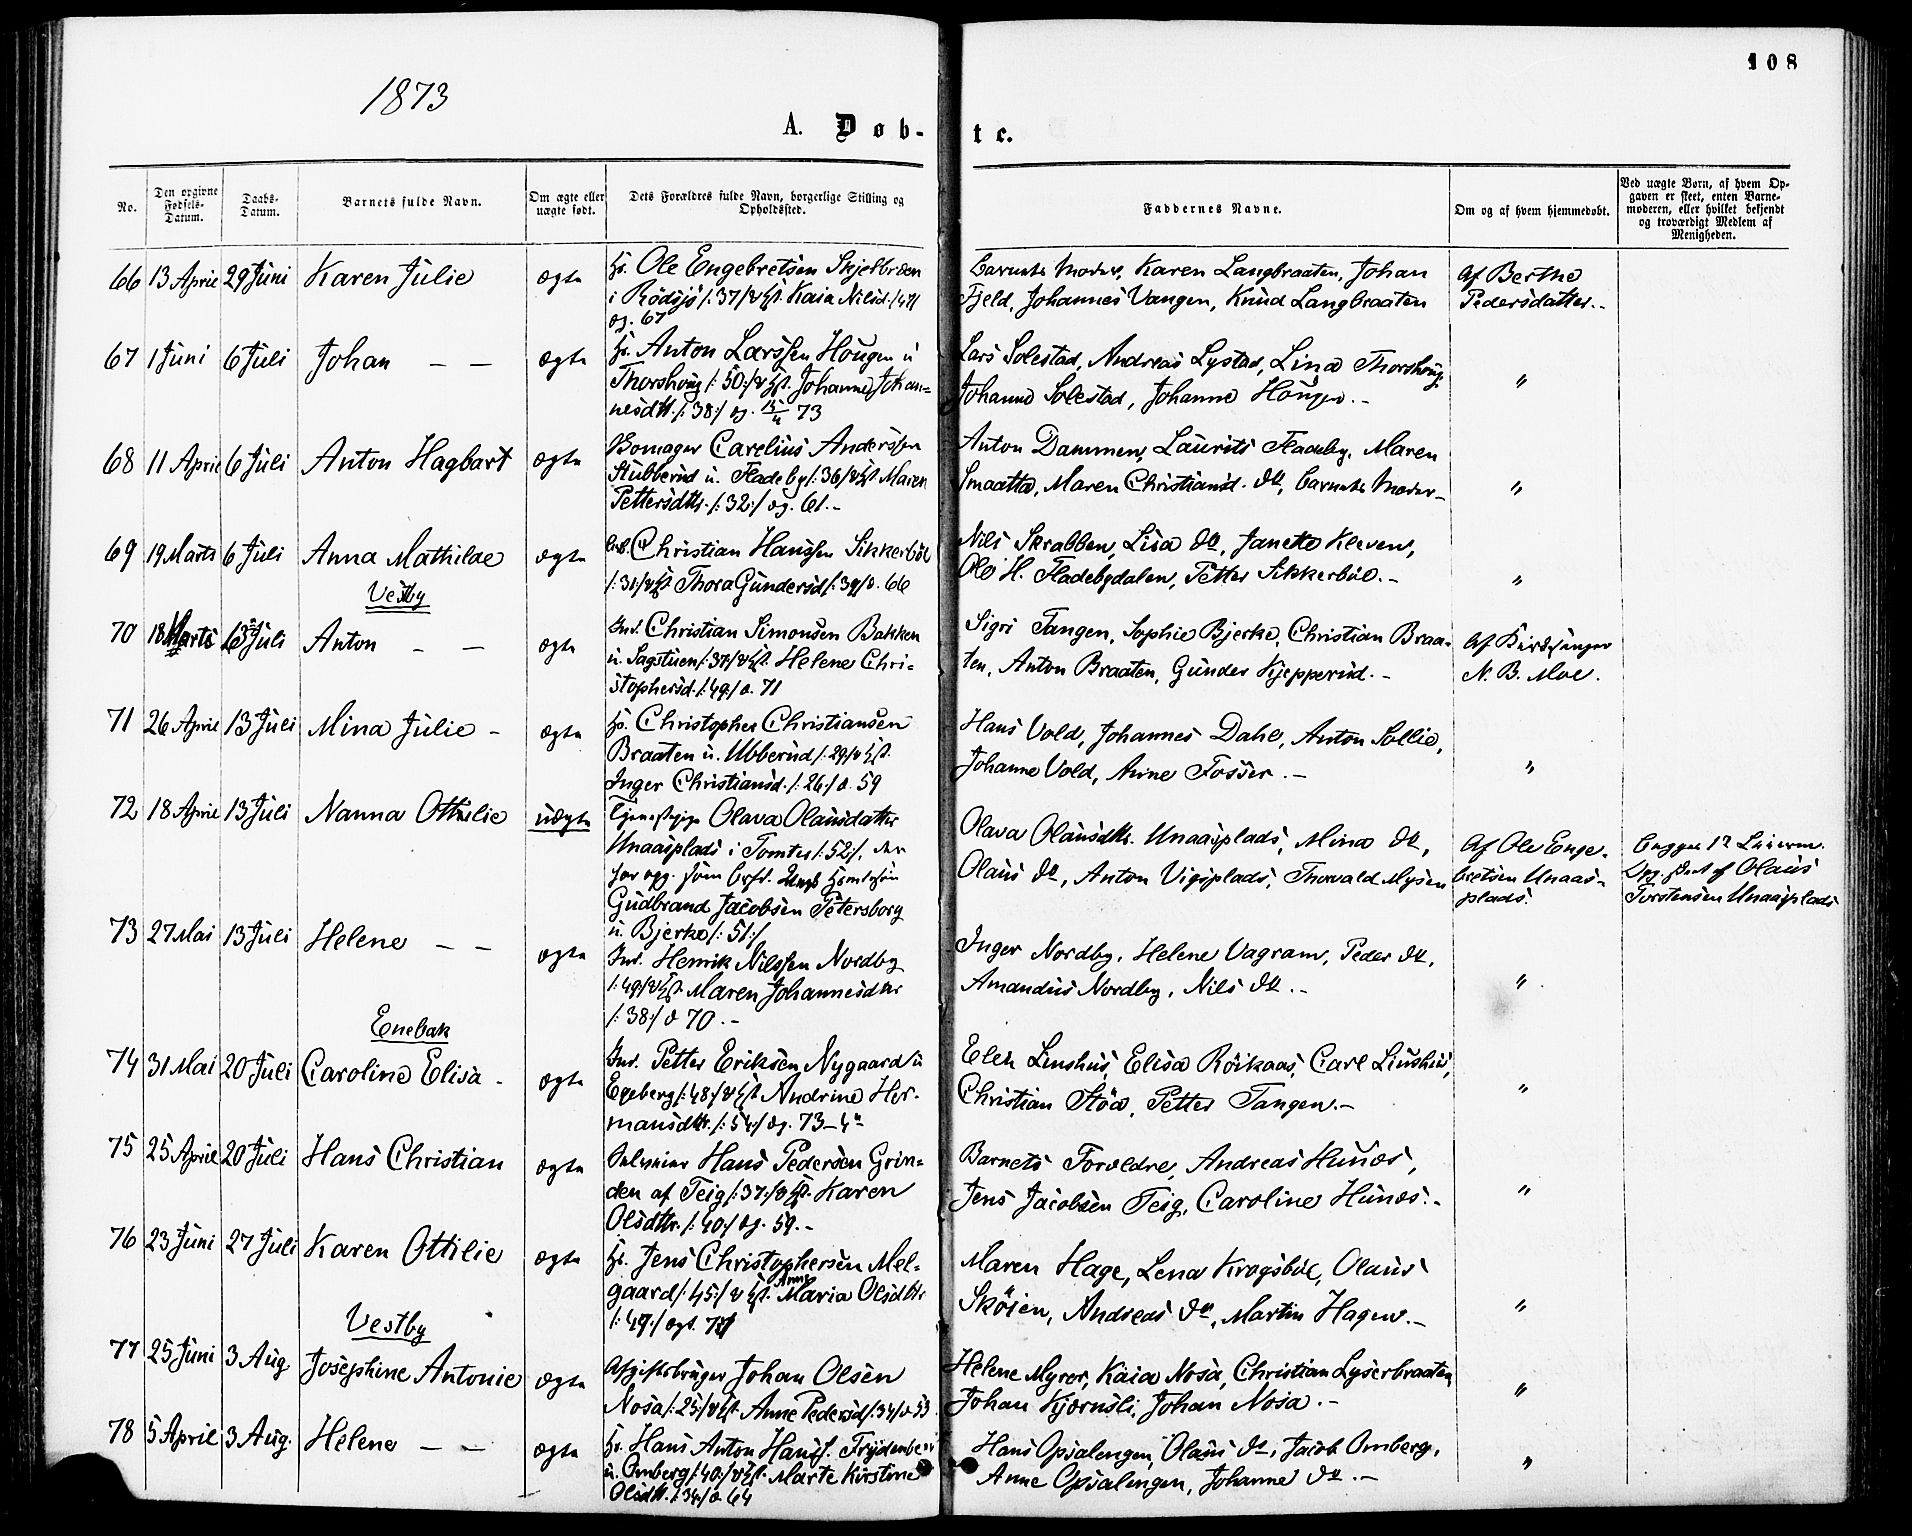 1873
108
A. Døb-
te.
No.
Den opgivne Fødsels-Datum.
Daabs-Datum.
Barnets fulde Navn.
Om ægte eller uægte født.
Dets Forældres fulde Navn, borgerlige Stilling og Opholdssted.
Faddernes Navne.
Om og af hvem hjemmedøbt.
Ved uægte Børn, af hvem Op-
gaven er skeet, enten Barne-
moderen, eller hvilket bekjendt
og troværdigt Medlem af
Menigheden.
66 13 April 29 Juni Karen Julie ægte
Ole Engebretsen Skjelbreen
i Rödsjö /:37/ Kaia Nilsd. /47/
og. 67
Barnets Moder, Karen Langbraaten, Johan
Fjeld, Johannes Vangen, Knud Langbraaten
Af Berthe
Pedersdatter.-
67 1 Juni 6 Juli Johan — — ægte
Anton Larssen Hougen u
Thorshoug /:50:/ Johanne Johan-
nesdtr. /:38:/ og. 73
Lars Solestad, Andreas Lystad, Lina Thorshoug
Johanne Solestad, Johanne Hougen.-
"
68 11 April 6 Juli Anton Hagbart ægte
Carelius Anderssen
Stubberud u. Fladeby /:36/ Maren
Pettersdtr. /:32:/ og. 61.-
Anton Dammen, Laurits Fladeby, Maren
Smaatta, Maren Christiansd. do, Barnets Moder-
"
69 19 Marts 6 Juli Anna Mathilde ægte
Christian Hanssen Sikkerböl
/:31/ Thora Gundersd /:39/ o. 66
Nils Skrabben, Lisa do, Janette Kleven,
Ole H. Fladebydalen, Petter Sikkerböl.-
"
Vestby
70 18 Marts 13 Juli Anton — — ægte
Ind. Christian Simonsen Bakken
u. Sagstuen /:37/ Helene Chri-
stophersd. /:49:/ o. 71
Sigri Tangen, Sophie Bjerke, Christian Braa-
ten, Anton Braaten, Gunder Kjepperud.-
Af Kirkesanger
N. B. Moe.
71 26 April 13 Juli Mina Julie - ægte
Christopher Christiansen
Braaten u. Ubberud /:29/
Inger Christiansd. /:26:/ o. 59
Hans Vold, Johannes Dahl, Anton Sollie,
Johanne Vold, Anne Fosser.-
"
72 18 April 13 Juli Nanna Ottilie uægte
Olava Olausdatter
Unaasplads i Tomter /:52:/, der
har opg. som Brfd.
Gudbrand Jacobsen Petersborg
u. Bjerke /:51:/
Olava Olausdtr. Unaasplads, Mina do,
Olaus do, Anton Vigsplads, Thorvald Mysen
Af Ole Enge-
bretsen Unaas-
plads.
Olaus
Torstensen Unaasplads
73 27 Mai 13 Juli Helene — — ægte
Ind. Henrik Nilssen Nordby
/:49/ Maren Johannesdtr
/:38:/ o 70.-
Inger Nordby, Helene Vagram, Peder do,
Amandus Nordby, Nils do.-
"
Enebak
74 31 Mai 20 Juli Caroline Elisa - ægte
Ind. Petter Eriksen Nygaard u
Egeberg /:48:/ Andrine Her-
mansdtr. /:54:/ og. 73
Elen Linshus, Elisa Röikaas, Carl Linshus,
Christian Stöa, Petter Tangen.-
"
75 25 April 20 Juli Hans Christian ægte
Hans Pedersen Grin-
den af Teig /:37:/ Karen
Olsdtr. /:40:/ og. 59.-
Barnets Forældre, Andreas Hunæs,
Jens Jacobsen Teig, Caroline Hunæs.-
"
76 23 Juni 27 Juli Karen Ottilie ægte
Jens Christophersen Mel-
gaard /:45:/ Anne Maria Olsdtr
/:47:/
Maren Hage, Lena Kragsböl, Olaus
Sköien, Andreas do, Martin Hagen.-
"
Vestby
77 25 Juni 3 Aug Josephine Antonie ægte
Afgiftsbruger Johan Olsen
Nosa /:25:/ Anne Pedersd /:34/ o 53
Helene Myrer, Kaia Nosa, Christian Lyserbraaten,
Johan Kjærnsli, Johan Nosa.-
"
78 5 April 3 Aug. Helene — — ægte
Hans Anton Hansf. Frydenberg
u. Omberg /:40:/ Marte Kirstine
Olsdtr. /:34/ o 64
Hans Opsalengen, Olaus do, Jacob Omberg,
Anne Opsalengen, Johanne do.-
"